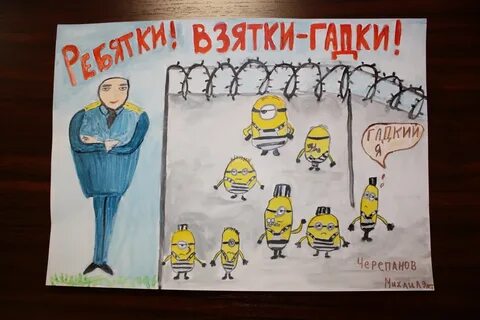 Ребятки! Взятки-гадки!
Гадкий
я
Черепанов
Михаил